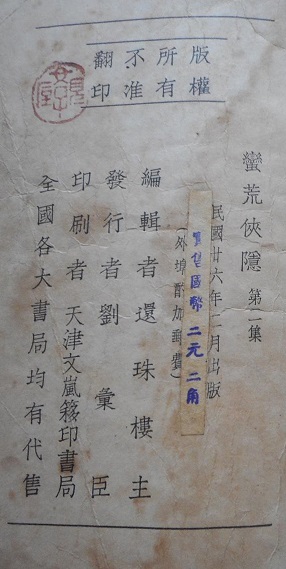 版權
所有
不准
翻印
蠻荒俠隱 第二集
民國廿六年二月出版
區幣二元二角
(外埠酌加郵費)
編輯者 還珠樓主
發行者 劉彙臣
印刷者 天津文嵐簃印書局
全國各大書局均有代售